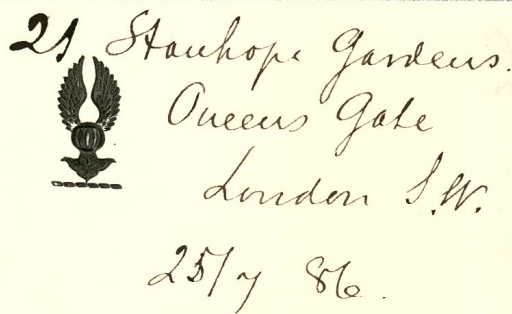 21 Stanhope Gardens.
Queens Gate
London S.W.
25/7 86.